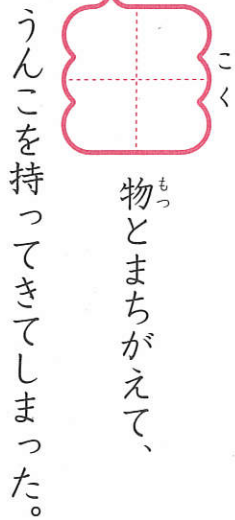 こく
物とまちがえて、
もっ
うんこを持ってきてしまった。